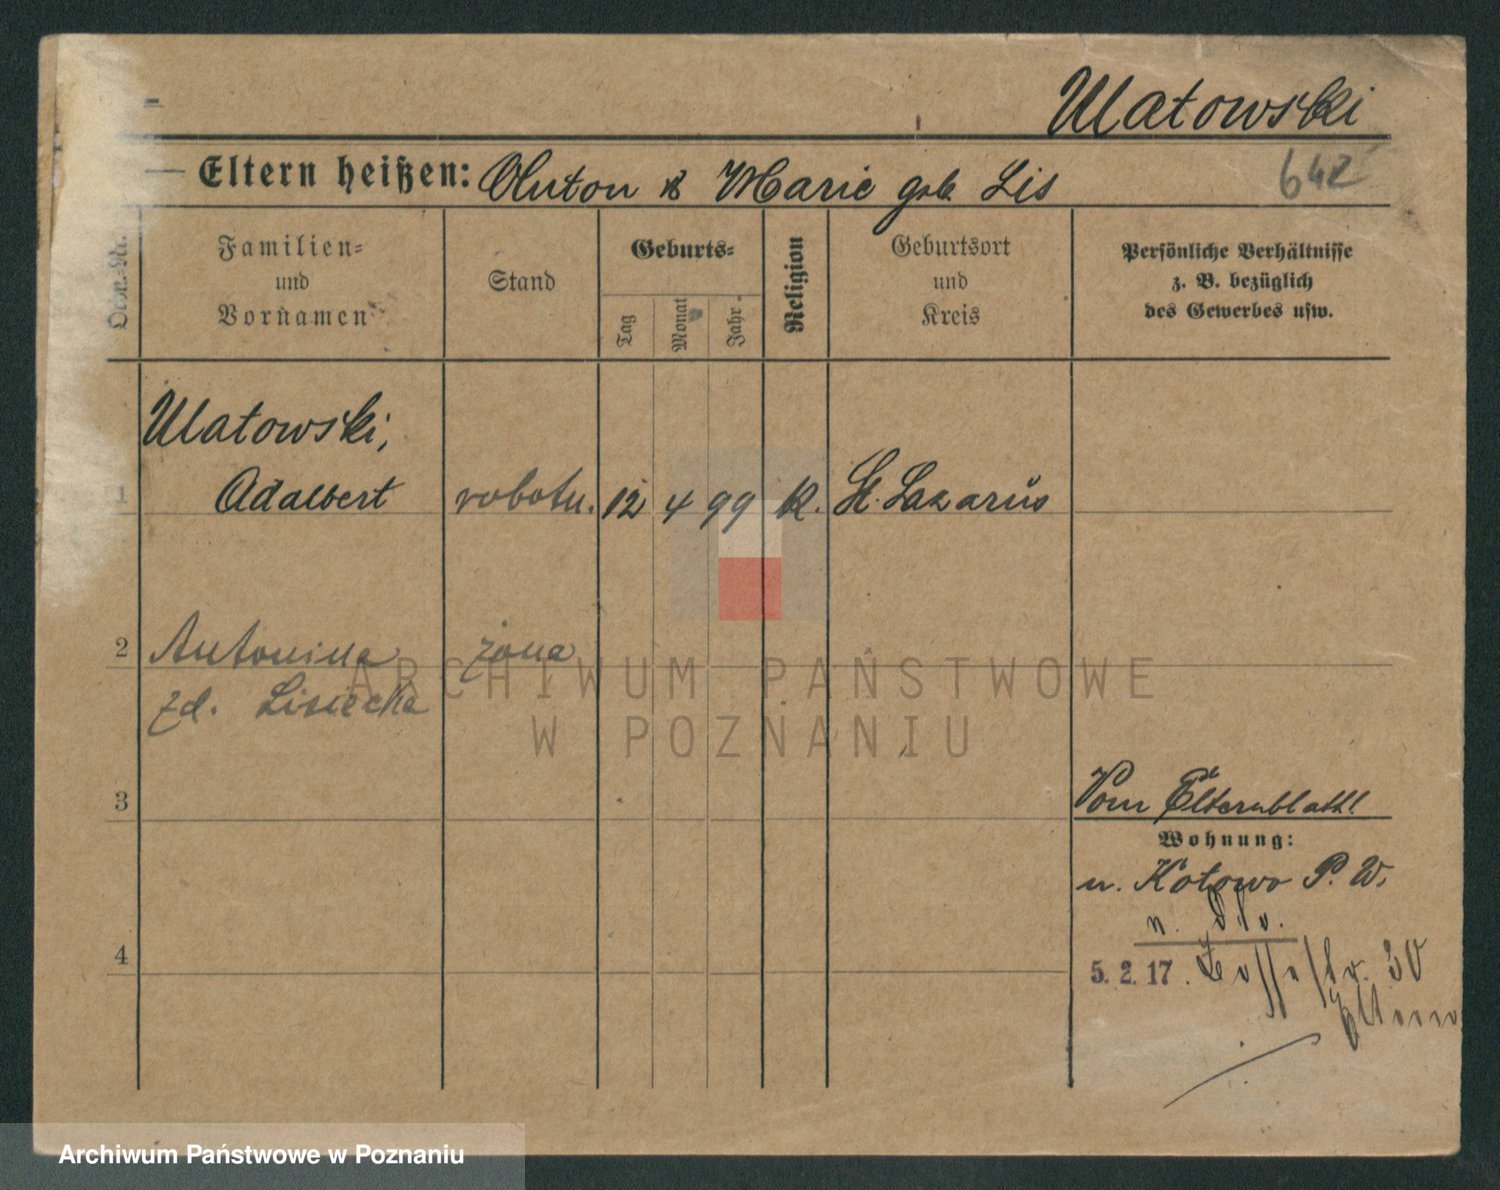 Ulatowski
642
Eltern heißen: Anton & Marie geb. Lis
Ordn.-Nr.
Familien-
und
Vornamen
Stand
Geburts-
Tag
Monat
Jahr
Religion
Geburtsort
und
Kreis
Persönliche Verhältnisse
z. B. bezüglich
des Gewerbes usw.
Ulatowski,
1 Adalbert robotn. 12 4 99 K. St. Lazarus
2 Antonina żona
zd. Lisiecka
3
Vom Elternblatt!
Wohnung:
n. Kotowo P. W.
4
5. 2. 17.
30
Eltern
ARCHIWUM PAŃSTWOWE
W POZNANIU
Archiwum Państwowe w Poznaniu